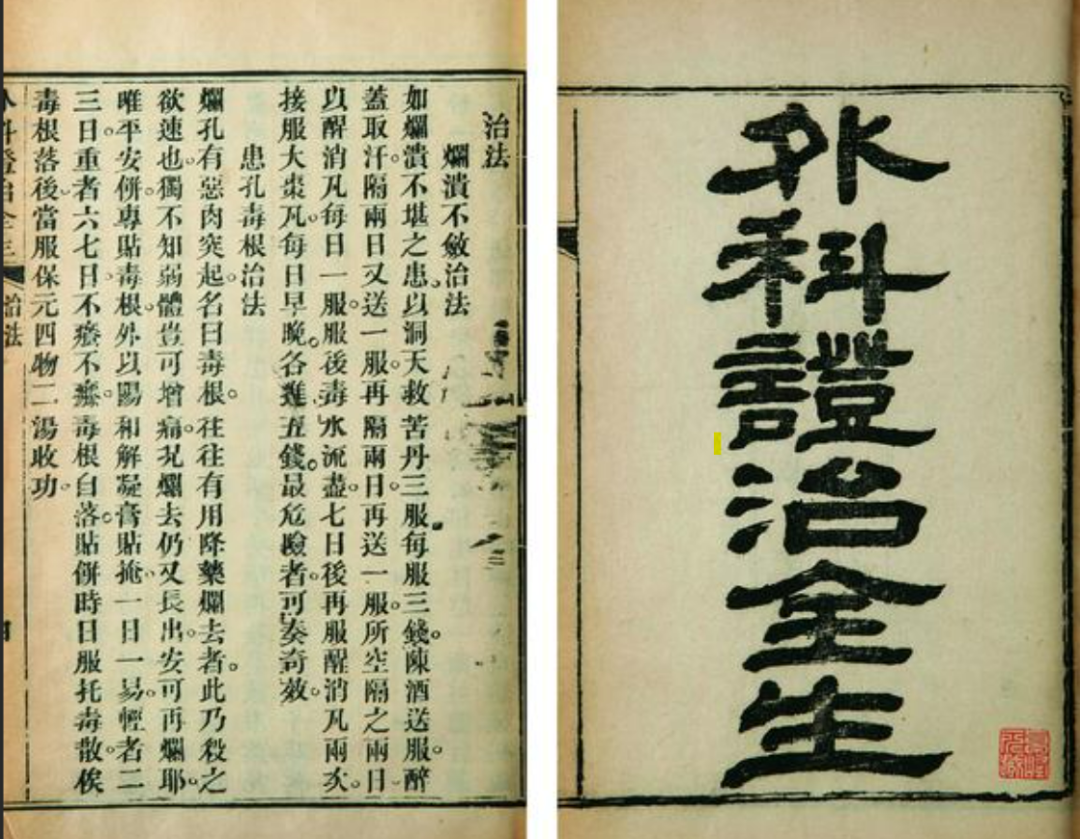 外科證治全生
治法
爛潰不斂治法
如爛潰不堪之患。以洞天救苦丹三服每服三錢。陳酒送服。醉
蓋取汗。隔兩日又送一服。再隔兩日。再送一服。所空隔之兩日
以醒消丸每日一服。服後毒水流盡。七日後再服醒消丸兩次。
接服大棗丸。每日早晚。各進五錢。最危險者。可奏奇效。
患孔毒根治法
爛孔有惡肉突起。名曰毒根。往往有用降藥爛去者。此乃殺之
欲速也。獨不知弱體豈可增痛。况爛去仍又長出。安可再爛耶。
唯平安餅。專貼毒根。外以陽和解凝膏貼掩。一日一易。輕者二
三日。重者六七日。不不癢。毒根自落。貼餅時日服托毒散。俟
毒根落後。當服保元四物二湯收功。
治法